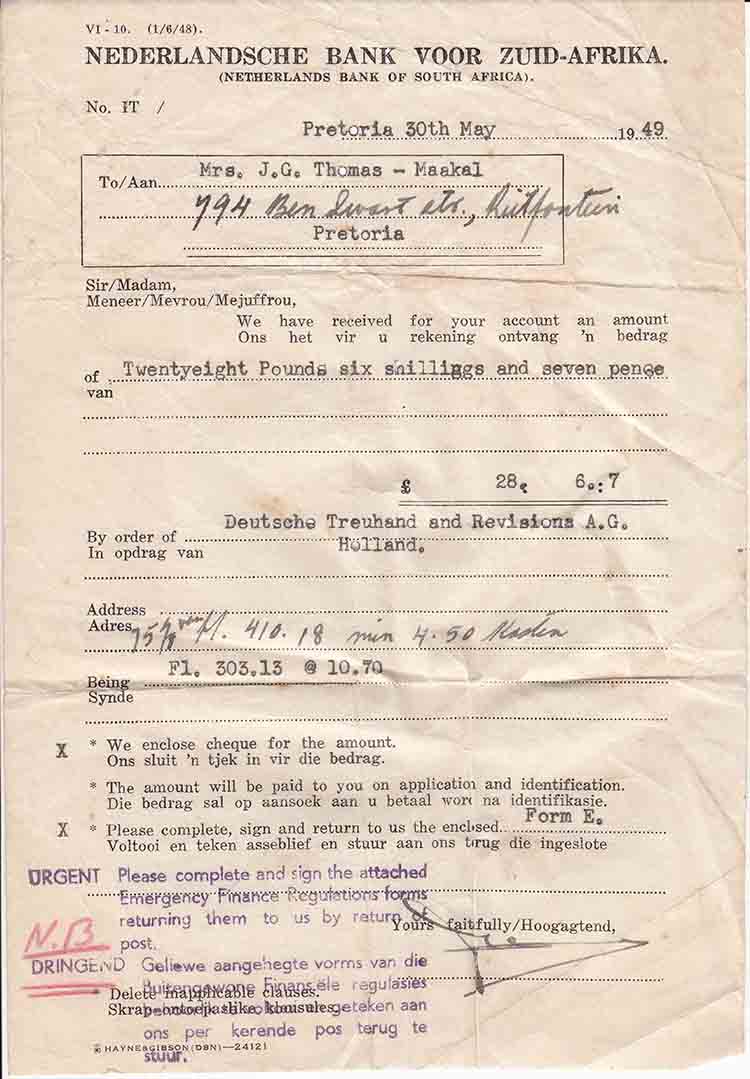 VI - 10. (1/6/48).
NEDERLANDSCHE BANK VOOR ZUID-AFRIKA.
(NETHERLANDS BANK OF SOUTH AFRICA).
No. IT /
Pretoria 30th May 1949
To/Aan Mrs. J.G. Thomas - Maakal
794 Ben Swart str., Rietfontein
Pretoria
Sir/Madam,
Meneer/Mevrou/Mejuffrou,
We have received for your account an amount
Ons het vir u rekening ontvang 'n bedrag
of Twentyeight Pounds six shillings and seven penge
van
£ 28. 6.:7
By order of Deutsche Treuhand and Revisions A.G.
In opdrag van Holland.
Address
Adres 75% van fl. 410.18 min 4.50 Kosten
Being Fl. 303.13 @ 10.70
Synde
X * We enclose cheque for the amount.
Ons sluit 'n tjek in vir die bedrag.
* The amount will be paid to you on application and identification.
Die bedrag sal op aansoek aan u betaal word na identifikasie.
X * Please complete, sign and return to us the enclosed Form E.
Voltooi en teken asseblief en stuur aan ons terug die ingeslote
URGENT Please complete and sign the attached
Emergency Finance Regulations forms
returning them to us by return of
post.
Yours faithfully/Hoogagtend,
N.B
DRINGEND Geliewe aangehegte vorms van die
Buitengewone Finansiële regulasies
geteken aan
ons per kerende pos terug te
stuur.
* Delete inapplicable clauses.
Skrap ontoepaslike klousules.
HAYNE & GIBSON (DBN)—24121